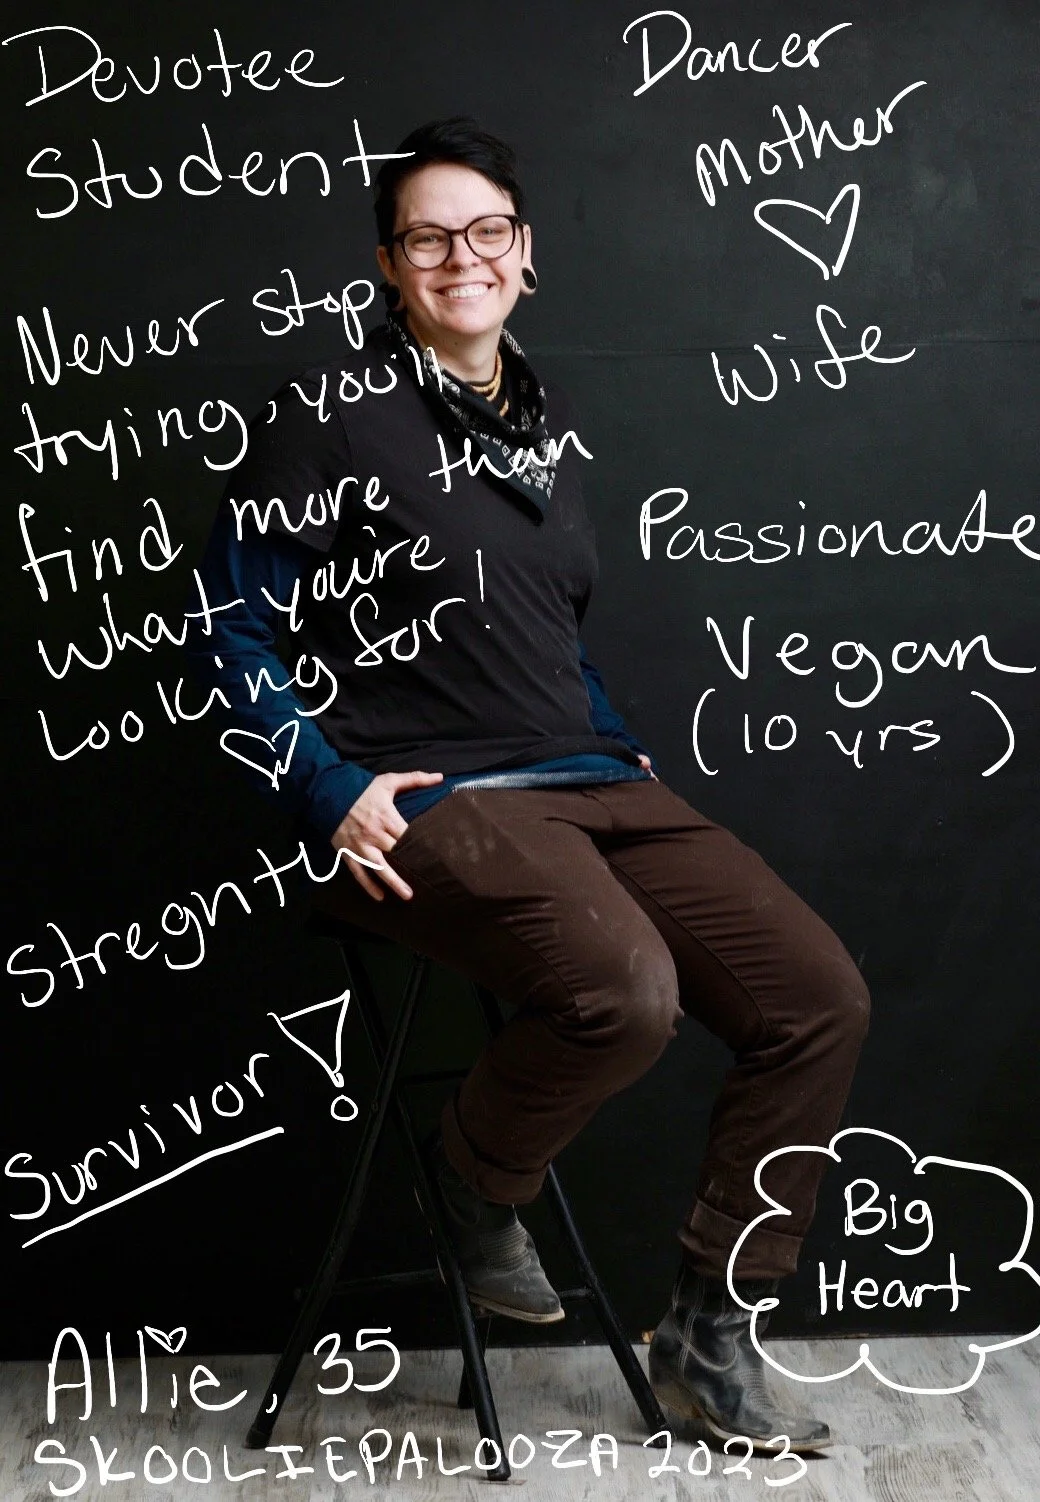 Devotee
Student
Never stop
trying, you'll
find more than
what you're
Looking for!
Stregnth
Survivor!
Allie, 35
SKOOLIEPALOOZA 2023
Dancer
Mother
Wife
Passionate
Vegan
(10 yrs)
Big
Heart